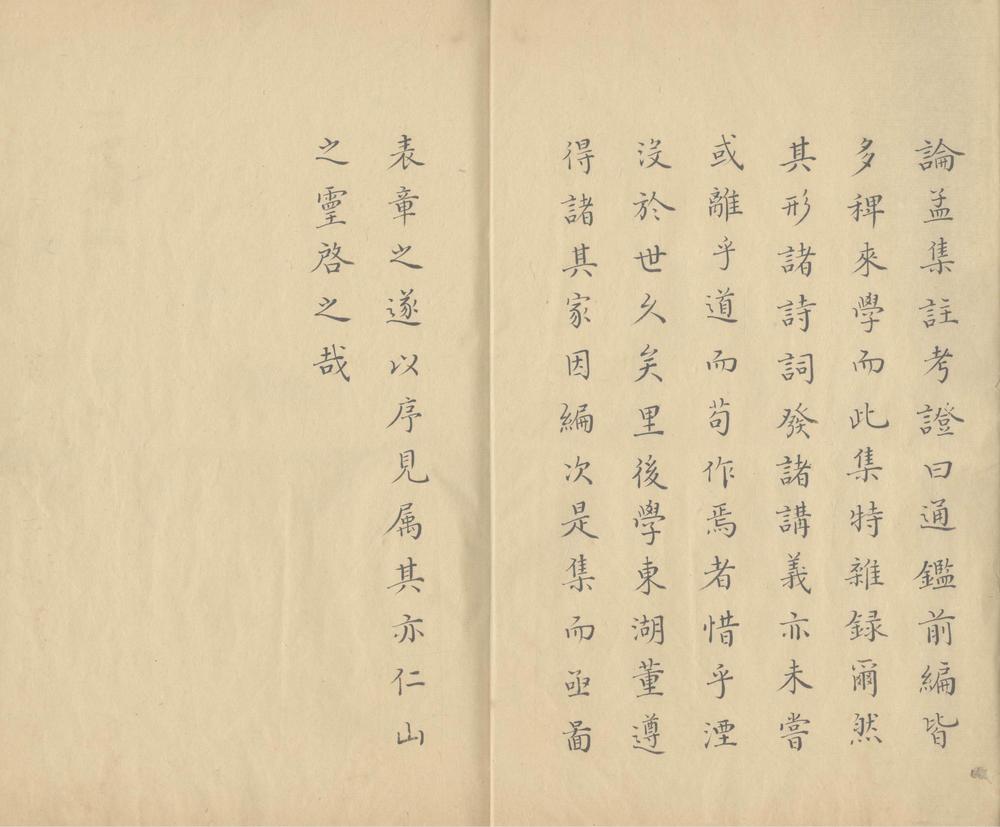 論孟集註考證曰通鑑前編皆
多稗來學而此集特雜録爾然
其形諸詩詞發諸講義亦未嘗
或離乎道而茍作焉者惜乎湮
没於世乆矣里後學東湖董遵
得諸其家因編次是集而亟啚
表章之遂以序見属其亦仁山
之靈啓之哉